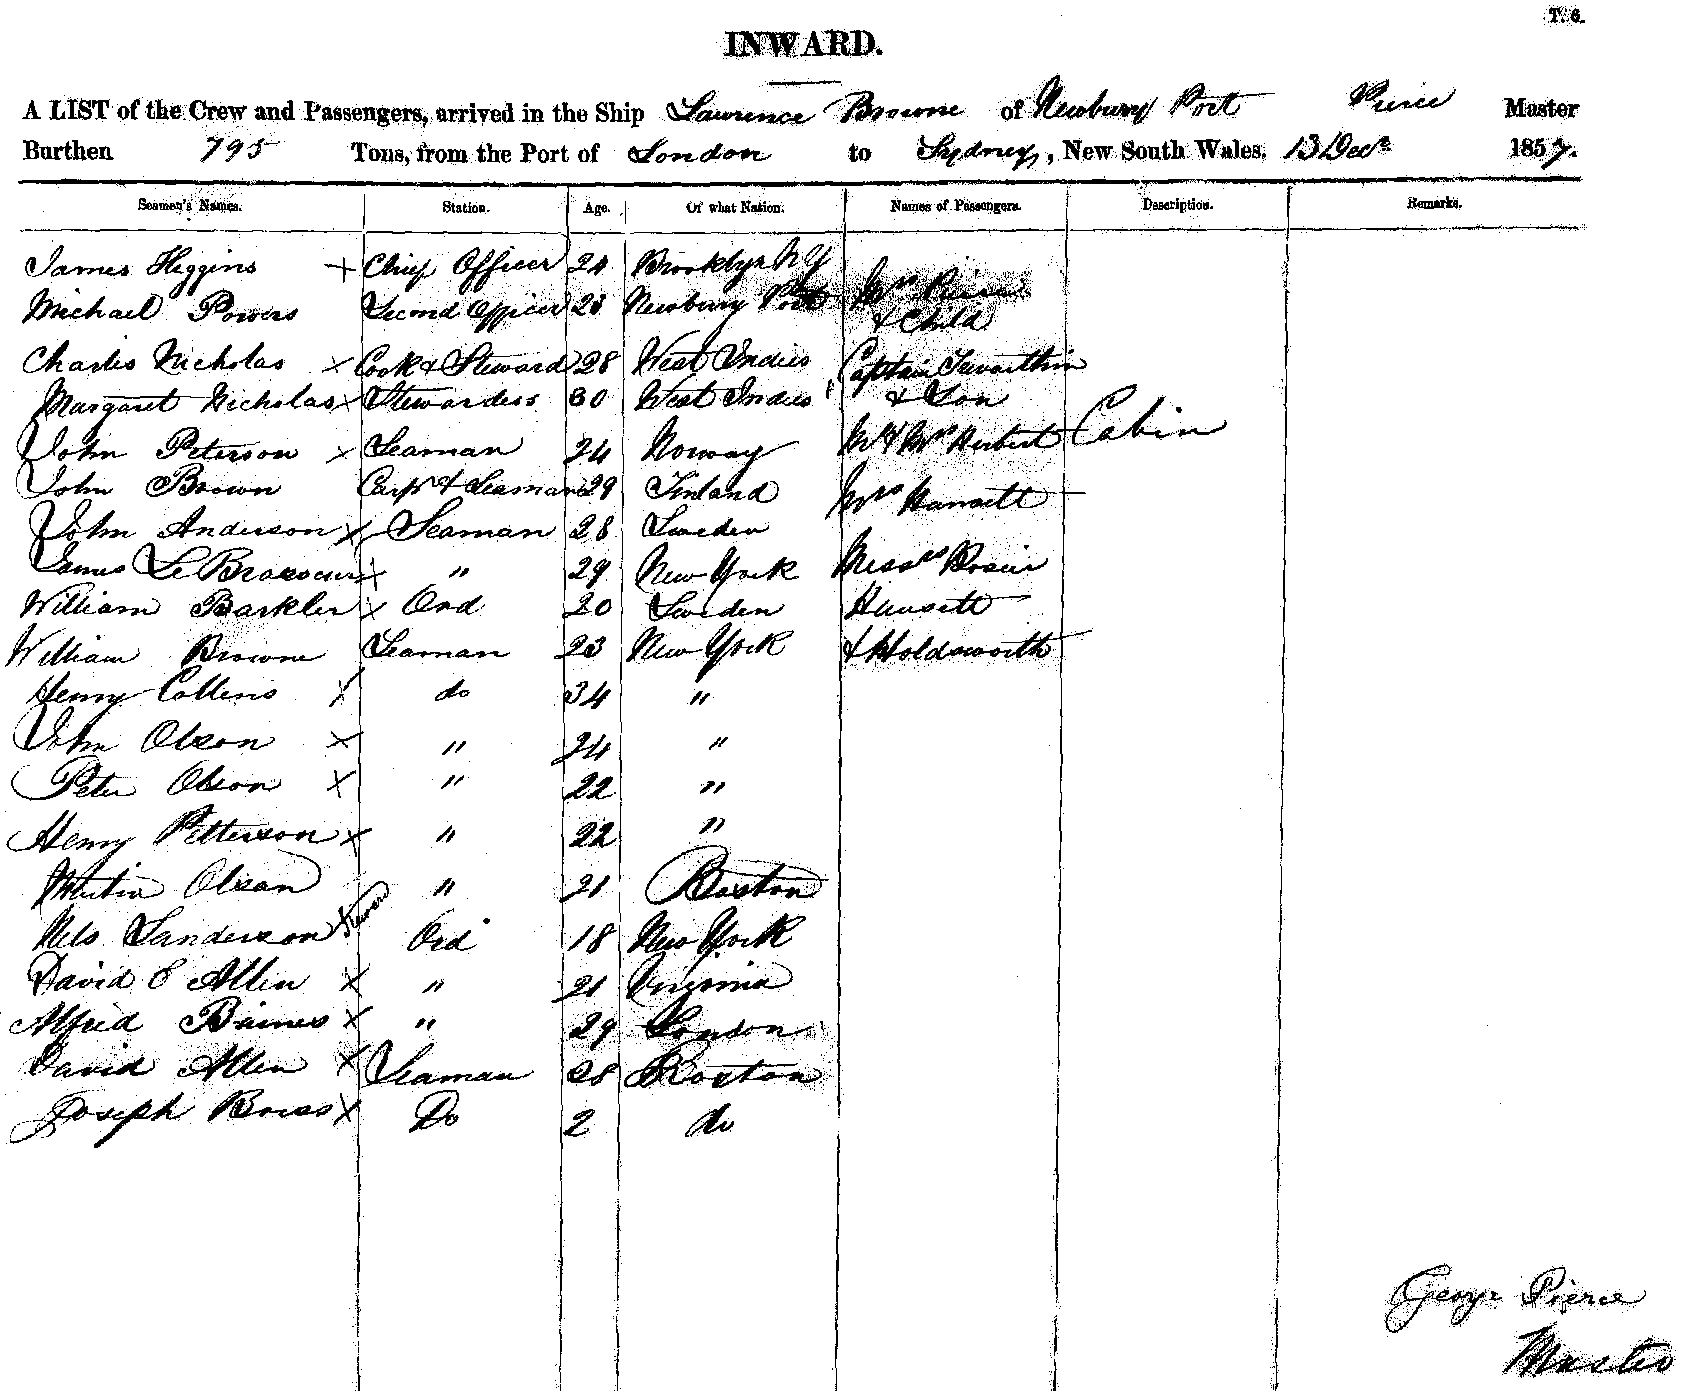 T. 6.
INWARD.
A LIST of the Crew and Passengers, arrived in the Ship Lawrence Browne of Newbury Port Pierce Master
Burthen 795 Tons, from the Port of London to Sydney, New South Wales, 13 Decr 1857.
Seamen's Names. Station. Age. Of what Nation. Names of Passengers. Description. Remarks.
James Higgins + Chief Officer 24 Brooklyn NY
Michael Powers Second Officer 23 Newbury Port Mrs Pierce
& Child
Charles Nicholas x Cook & Steward 28 West Indies Captain
Margaret Nicholas x Stewardess 30 West Indies & Son
John Peterson x Seaman 24 Norway Mr & Mrs Herbert Cabin
John Brown Carpr & Seaman 29 Finland Mrs
John Anderson x Seaman 28 Sweden
James Le x " 29 New York Messrs
William Barkler x Ord 20 Sweden
William Browne Seaman 23 New York & Holdsworth
Henry Collens x do 34 "
John Olson x " 24 "
Peter Olson x " 22 "
Henry Petterson x " 22 "
Martin Olsan " 21 Boston
Nels Sanderson x Ord 18 New York
David S Allen x " 21 Virginia
Alfred Baines x " 29 London
David Allen x Seaman 28 Boston
Joseph x Do 2 do
George Pierce
Master